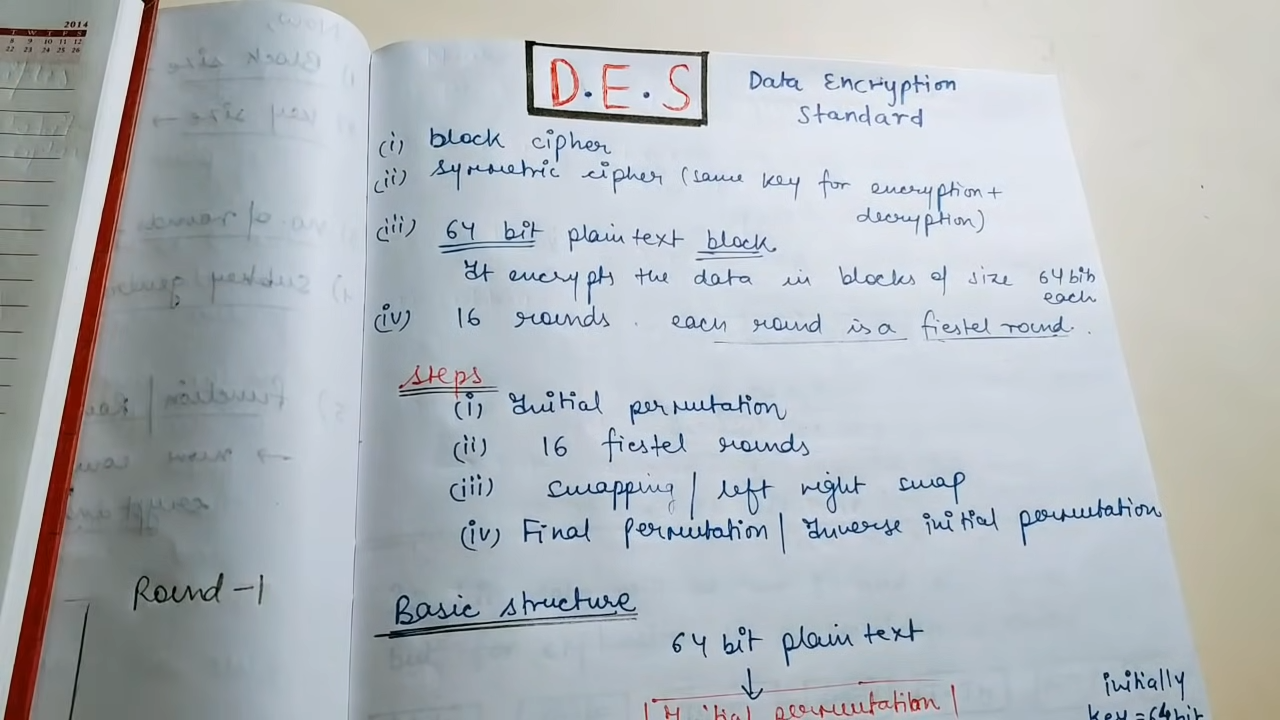 2014
T W T F S
8 9 10 11 12
22 23 24 25 26
Round-1
D.E.S
Data Encryption
Standard
(i) block cipher
(ii) symmetric cipher (same key for encryption +
decryption)
(iii) 64 bit plain text block
It encrypts the data in blocks of size 64 bit
each
(iv) 16 rounds. each round is a fiestel round.
steps
(i) Initial permutation
(ii) 16 fiestel rounds
(iii) swapping / left right swap
(iv) Final permutation / Inverse initial permutation
Basic structure
64 bit plain text
↓
Initial permutation
initially
key = 64 bit